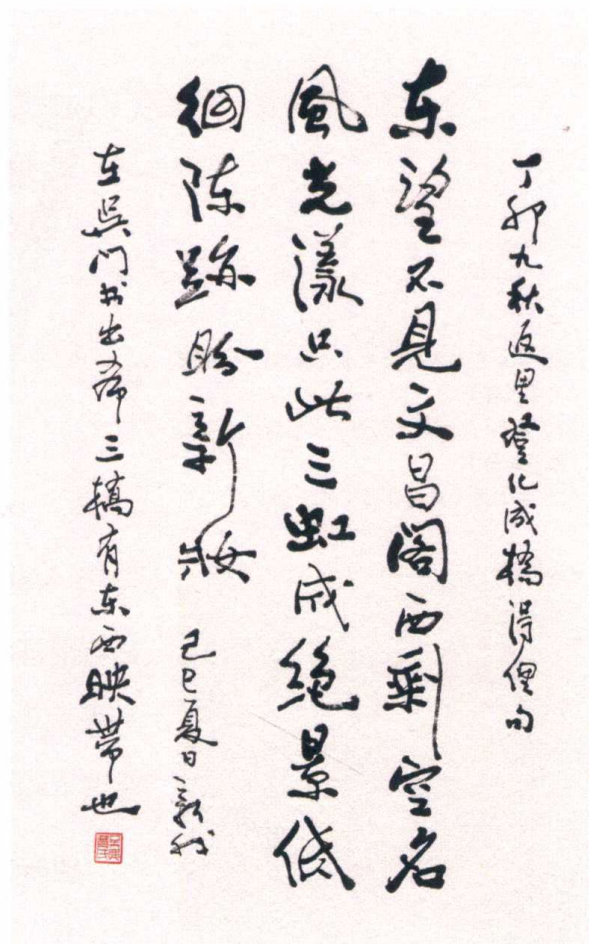 丁卯九秋返里登化成橋得俚句
东望不見文昌阁西剩空名
風光漾只此三虹成绝景低
徊陈跡盼新妝 己巳夏日新我
在吴门书出希三橋有东西映带也